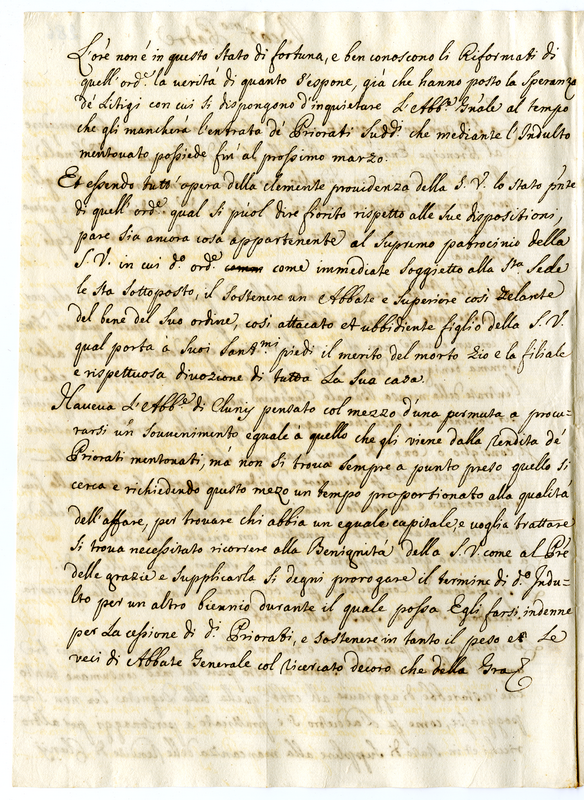 Lor è non è in questo Stato di fortuna, e ben conoscono li Riformati di
quell'ord.e la verità di quanto s'espone, già che hanno posto la speranza
de Litigi con cui si dispongono d'inquietare L'Abb.e Gñale al tempo
che gli mancherà l'entrata de Priorati Sudd.i che mediante l'Indulto
mentouato possiede fin al prossimo marzo.
Et essendo tutt'opera della clemente prouidenza della S.V. lo Stato pñte
di quell'ord.e qual si può dire fiorito rispetto alle sue dispositioni,
pare sia ancora cosa appartenente al Supremo patrocinio della
S.V. in cui d.o ord.e come immediate soggietto alla S.ta Sede
le sta sottoposto, il sostenere un Abbate e Superiore così Zelante
del bene del suo ordine, così attacato et ubbidiente figlio della S.V.
qual porta à suoi Sant.mi piedi il merito del morto Zio e la filiale
e rispettuosa diuozione di tutta La sua casa.
Haueua L'Abb.e di Cluny pensato col mezzo d'una permuta, a procu-
rarsi un souuenimento eguale à quello che gli viene dalla rendita de
Priorati mentonati, mà non si troua sempre a punto preso quello si
cerca e richiedendo questo mezo un tempo proportionato alla qualità
dell'affare, per trouare chi abbia un eguale capitale, e uoglia trattare
si troua necessitato ricorrere alla Benignità della S.V. come al Pre
delle grazie e supplicarla si degni prorogare il termine di d.o Indu-
lto per un altro biennio durante il quale possa Egli farsi indenne
per La cessione di d.i Priorati, e sostenere in tanto il peso et Le
veci di Abbate Generale col ricercato decoro che della Gra